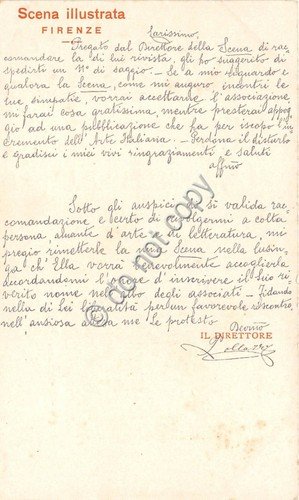 Scena illustrata
FIRENZE
Carissimo,
Pregato dal Direttore della Scena di rac-
comandare la di lui rivista gli ho suggerito di
spedirti un N° di saggio. – Se a mio riguardo e
qualora la Scena, come mi auguro incontri le
tue simpatie, vorrai accettarne l'associazione,
mi farai cosa gratissima mentre presterai appog
gio ad una pubblicazione che ha per iscopo l'in
cremento dell'Arte Italiana. – Perdona il disturbo
e gradisci i miei vivi ringraziamenti e saluti
affmo
Sotto gli auspici di sì valida rac-
comandazione e certo di rivolgermi a colta
persona, amante d'arte e di letteratura, mi
pregio rimetterle la mia Scena nella lusin-
ga che Ella vorrà benevolmente accoglierla
accordandomi l'onore d'inscrivere il Suo ri-
verito nome nell'albo degli associati – Fidando
nella di Lei libertà per un favorevole riscontro,
nell'ansiosa attesa me Le protesto
Devmo
IL DIRETTORE
do not copy